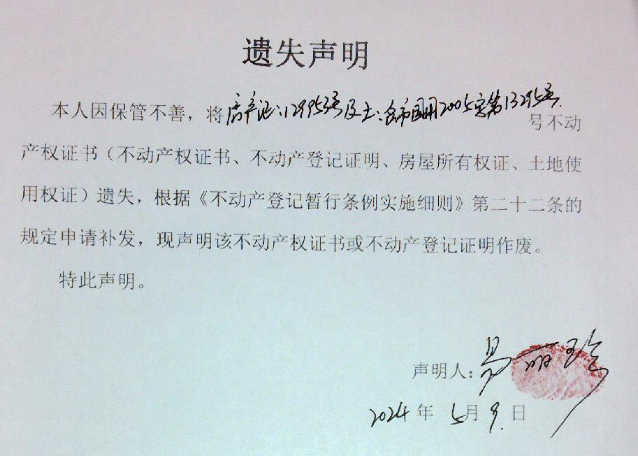 遗失声明
本人因保管不善，将房产证：129953号及土：会市国用2005字第13295号
号不动
产权证书（不动产权证书、不动产登记证明、房屋所有权证、土地使
用权证）遗失，根据《不动产登记暂行条例实施细则》第二十二条的
规定申请补发，现声明该不动产权证书或不动产登记证明作废。
特此声明。
声明人：易丽
2024年5月9日